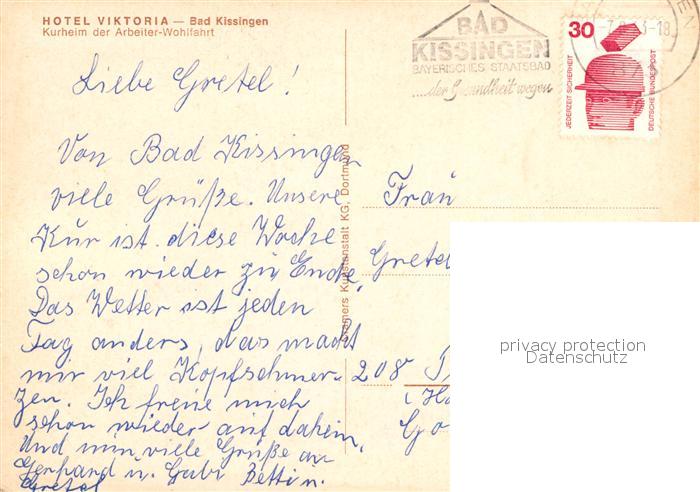 HOTEL VIKTORIA — Bad Kissingen
Kurheim der Arbeiter-Wohlfahrt
BAD
KISSINGEN
BAYERISCHES STAATSBAD
...der Gesundheit wegen
30
JEDERZEIT SICHERHEIT
DEUTSCHE BUNDESPOST
Liebe Gretel!
Von Bad Kissingen
viele Grüße. Unsere
Kur ist diese Woche
schon wieder zu Ende.
Das Wetter ist jeden
Tag anders, das macht
mir viel Kopfschmer-
zen. Ich freue mich
schon wieder auf daheim.
Und nun viele Grüße an
Gerhard u. Gabi Betti u.
Gretel
Krämers Kunstanstalt KG, Dortmund
Frau
Gretel
208
privacy protection
Datenschutz